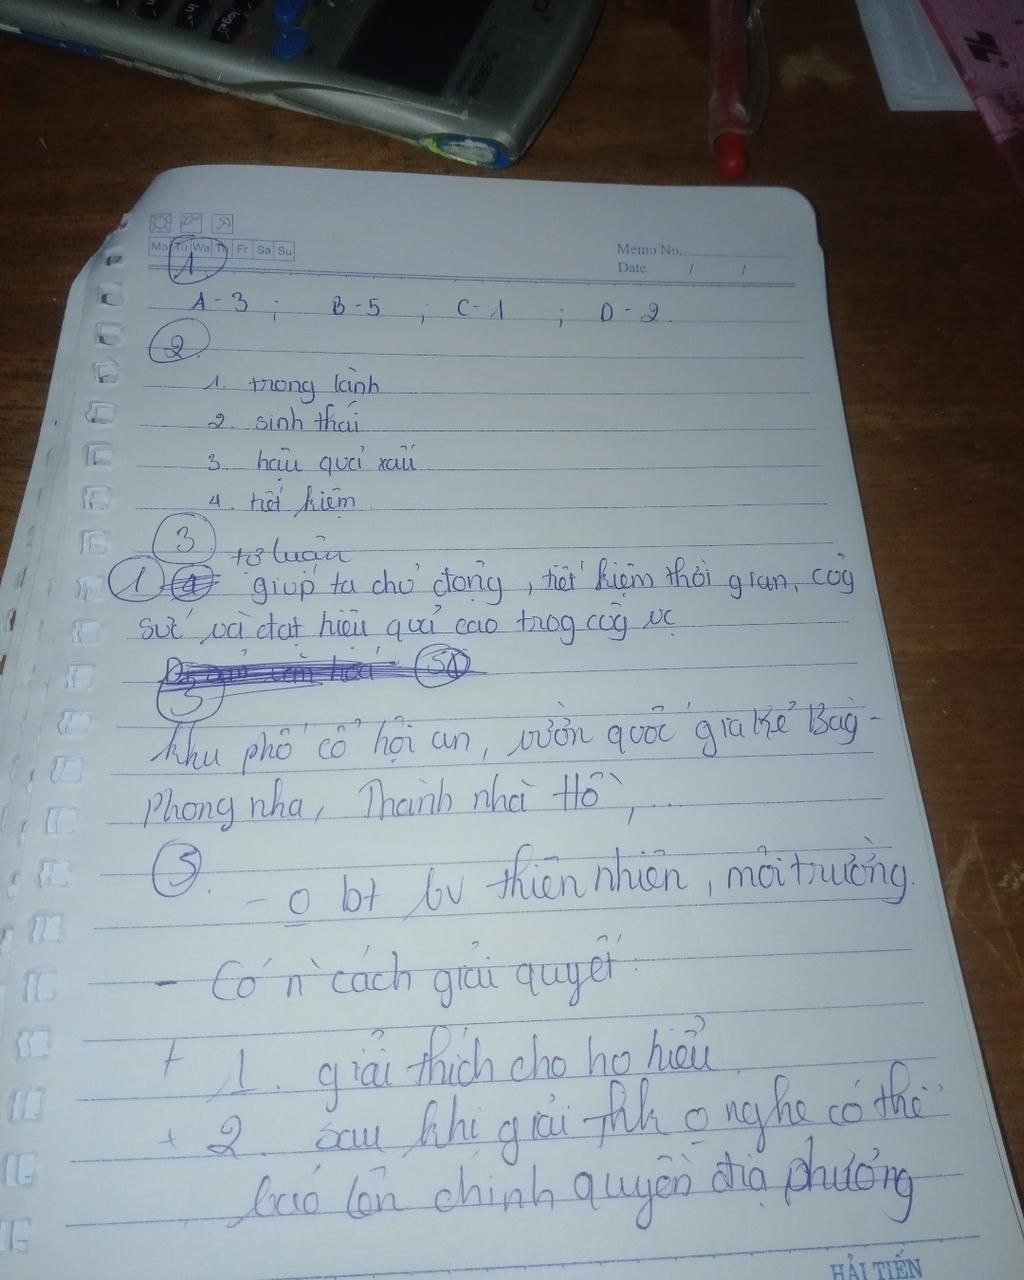 Mo Tu We Th Fr Sa Su
Memo No.
Date / /
1
A-3 ; B-5 ; C-1 ; D-2
2
1. trong lành
2. sinh thái
3. hậu quả xấu
4. tiết kiệm
3
tự luận
1 giúp ta chủ động, tiết kiệm thời gian, côg
sức và đạt hiệu quả cao trog côg vc
3
khu phố cổ hội an, vườn quốc gia kẻ Bàg-
Phong nha, Thành nhà Hồ, ...
5.
- o bt bv thiên nhiên, môi trường.
- Có n` cách giải quyết:
+ 1. giải thích cho họ hiểu
+ 2. sau khi giải thk o nghe có thể
báo lên chính quyền địa phương
HẢI TIẾN